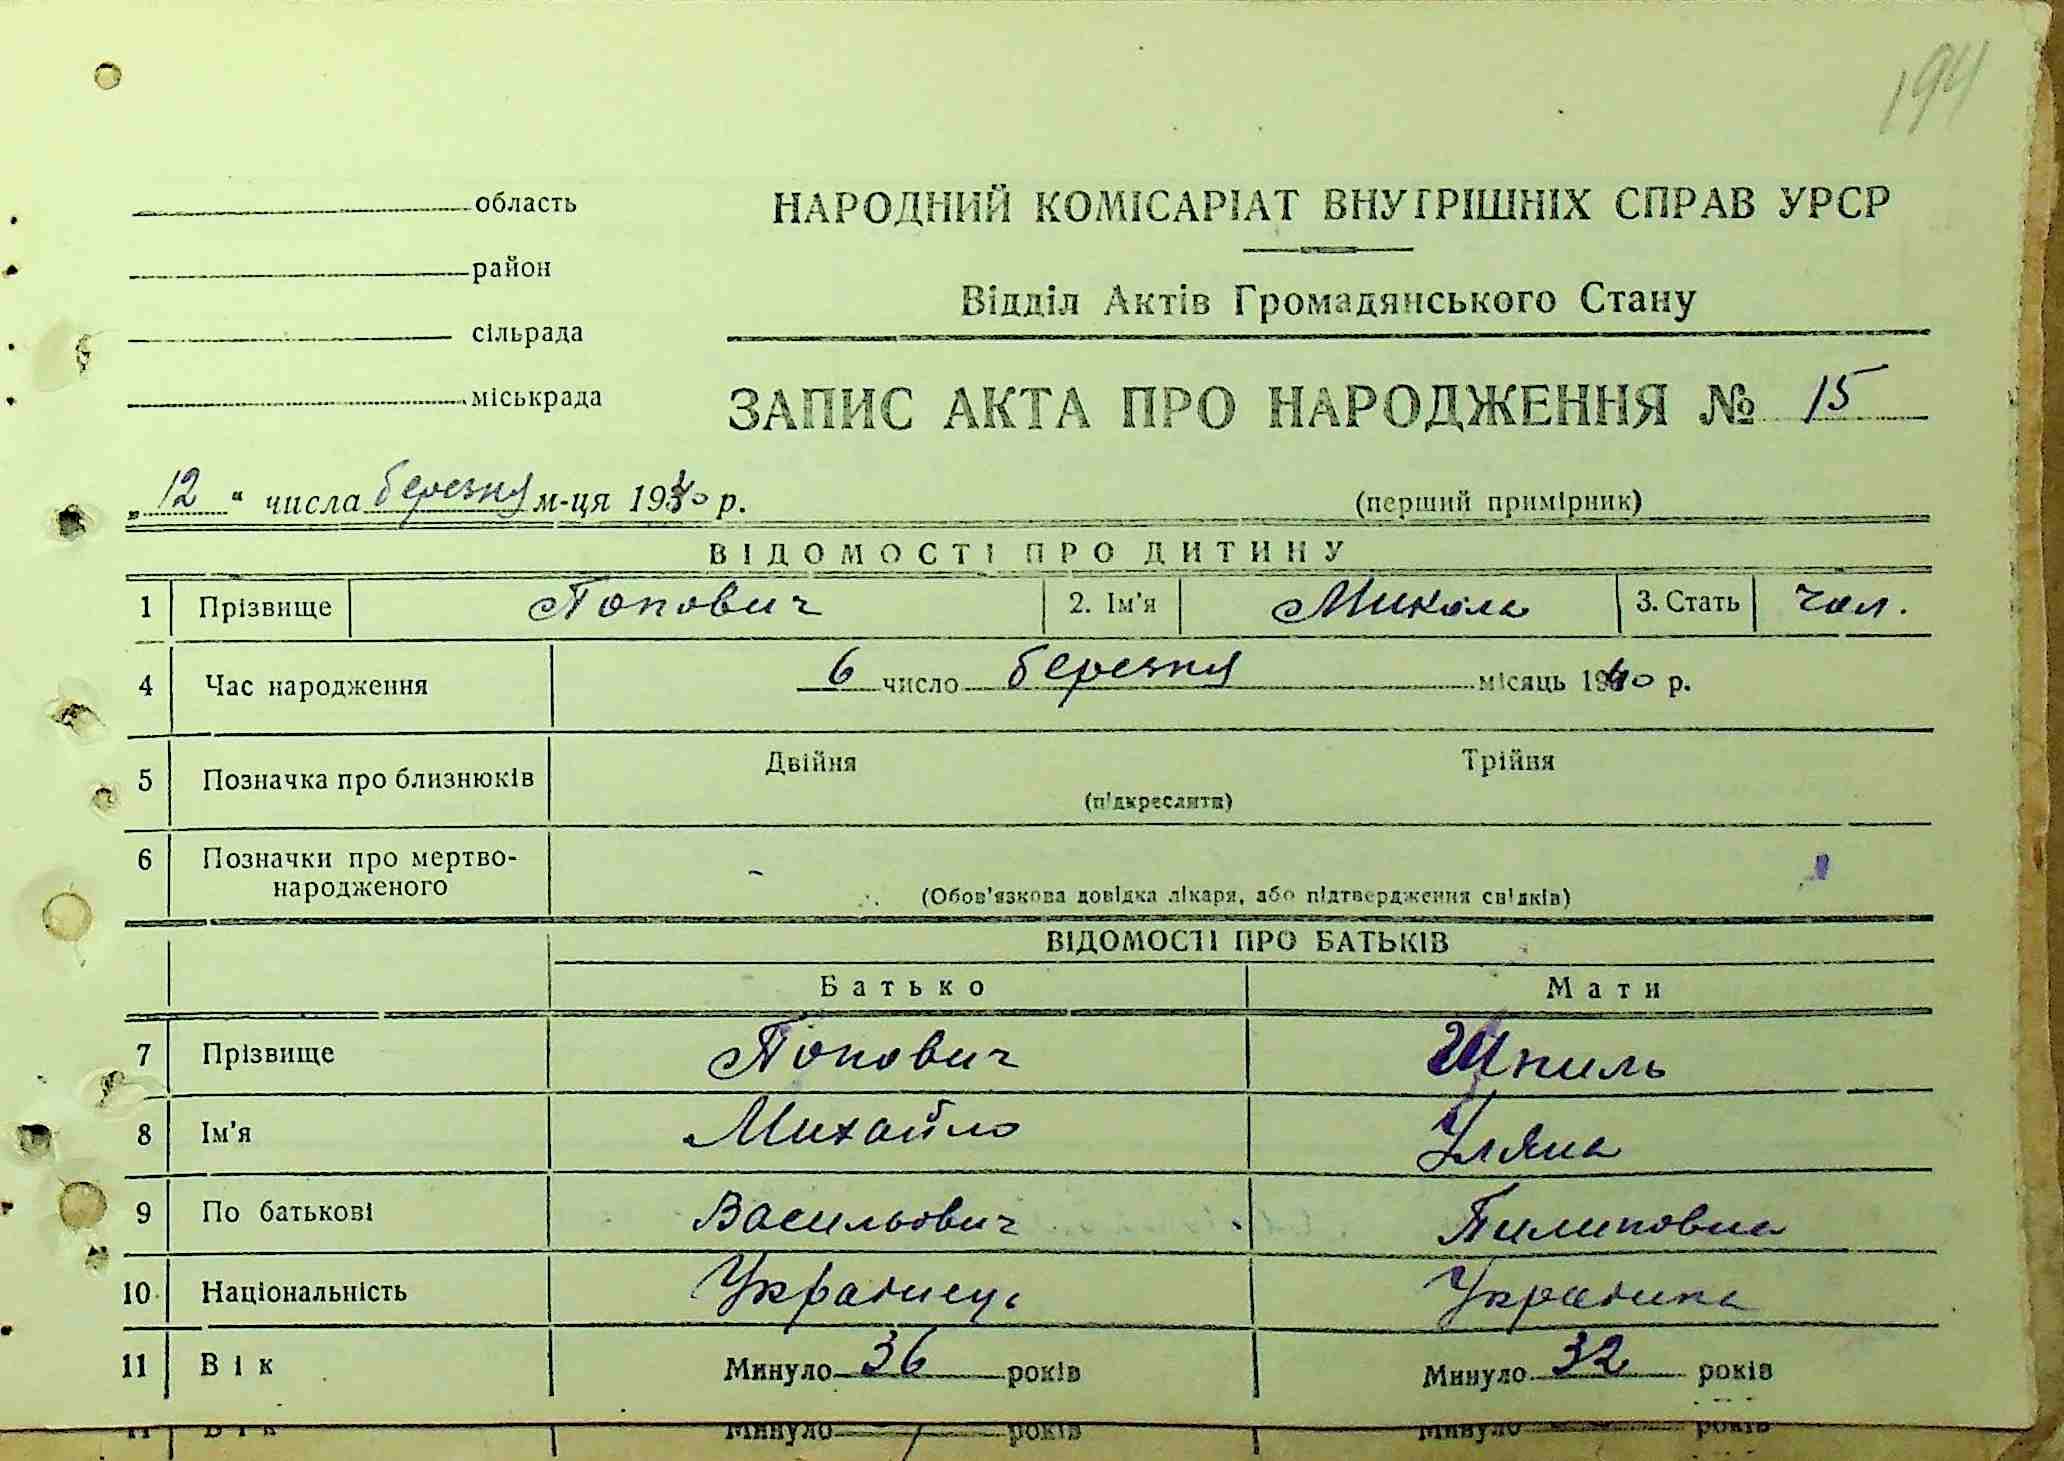 194
область
район
сільрада
міськрада
НАРОДНИЙ КОМІСАРІАТ ВНУТРІШНІХ СПРАВ УРСР
Відділ Актів Громадянського Стану
ЗАПИС АКТА ПРО НАРОДЖЕННЯ № 15
„12“ числа березня м-ця 1940 р.
(перший примірник)
ВІДОМОСТІ ПРО ДИТИНУ
1 Прізвище Попович 2. Ім'я Микола 3. Стать чол.
4 Час народження 6 число березня місяць 1940 р.
5 Позначка про близнюків Двійня Трійня
(підкреслити)
6 Позначки про мертво-
народженого -
(Обов'язкова довідка лікаря, або підтвердження свідків)
ВІДОМОСТІ ПРО БАТЬКІВ
Батько Мати
7 Прізвище Попович Шпиль
8 Ім'я Михайло Уляна
9 По батькові Васильович Пилиповна
10 Національність Українець Українка
11 Вік Минуло 36 років Минуло 32 років
11 Вік Минуло років Минуло років